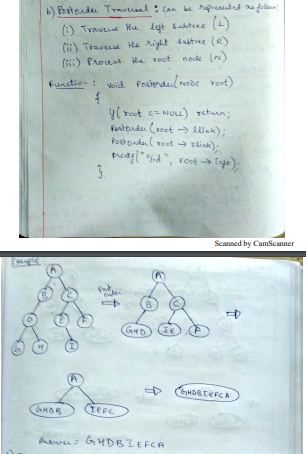 b) Postorder Traversal : Can be represented as follows
(i) Traverse the left subtree (L)
(ii) Traverse the right subtree (R)
(iii) Process the root node (N)
Function : void Postorder(NODE root)
{
if (root == NULL) return;
Postorder (root → llink);
Postorder (root → rlink);
printf("%d", root → info);
}
Scanned by CamScanner
Example
A
B C
D E F
G H I
Post order
⇒
A
B C
GHD IE F
⇒
A
GHDB IEFC
⇒ GHDBIEFCA
Answer = GHDBIEFCA